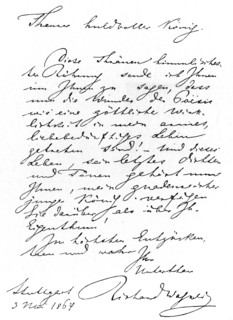 Theurer huldvoller König.
Diese Thränen himmlischester Rührung sende ich Ihnen
um Ihnen zu sagen, dass
nun die Wunder der Poesie
wie eine göttliche Wirklichkeit in mein armes,
liebebedürftiges Leben
getreten sind! – Und dieses
Leben, sein letztes Dichten
und Tönen gehört nun
Ihnen, mein gnadenreicher
junger König: verfügen
Sie darüber als über Ihr
Eigenthum
Im höchsten Entzücken,
treu und wahr Ihr
Unterthan
Stuttgart
3 Mai 1864
Richard Wagner